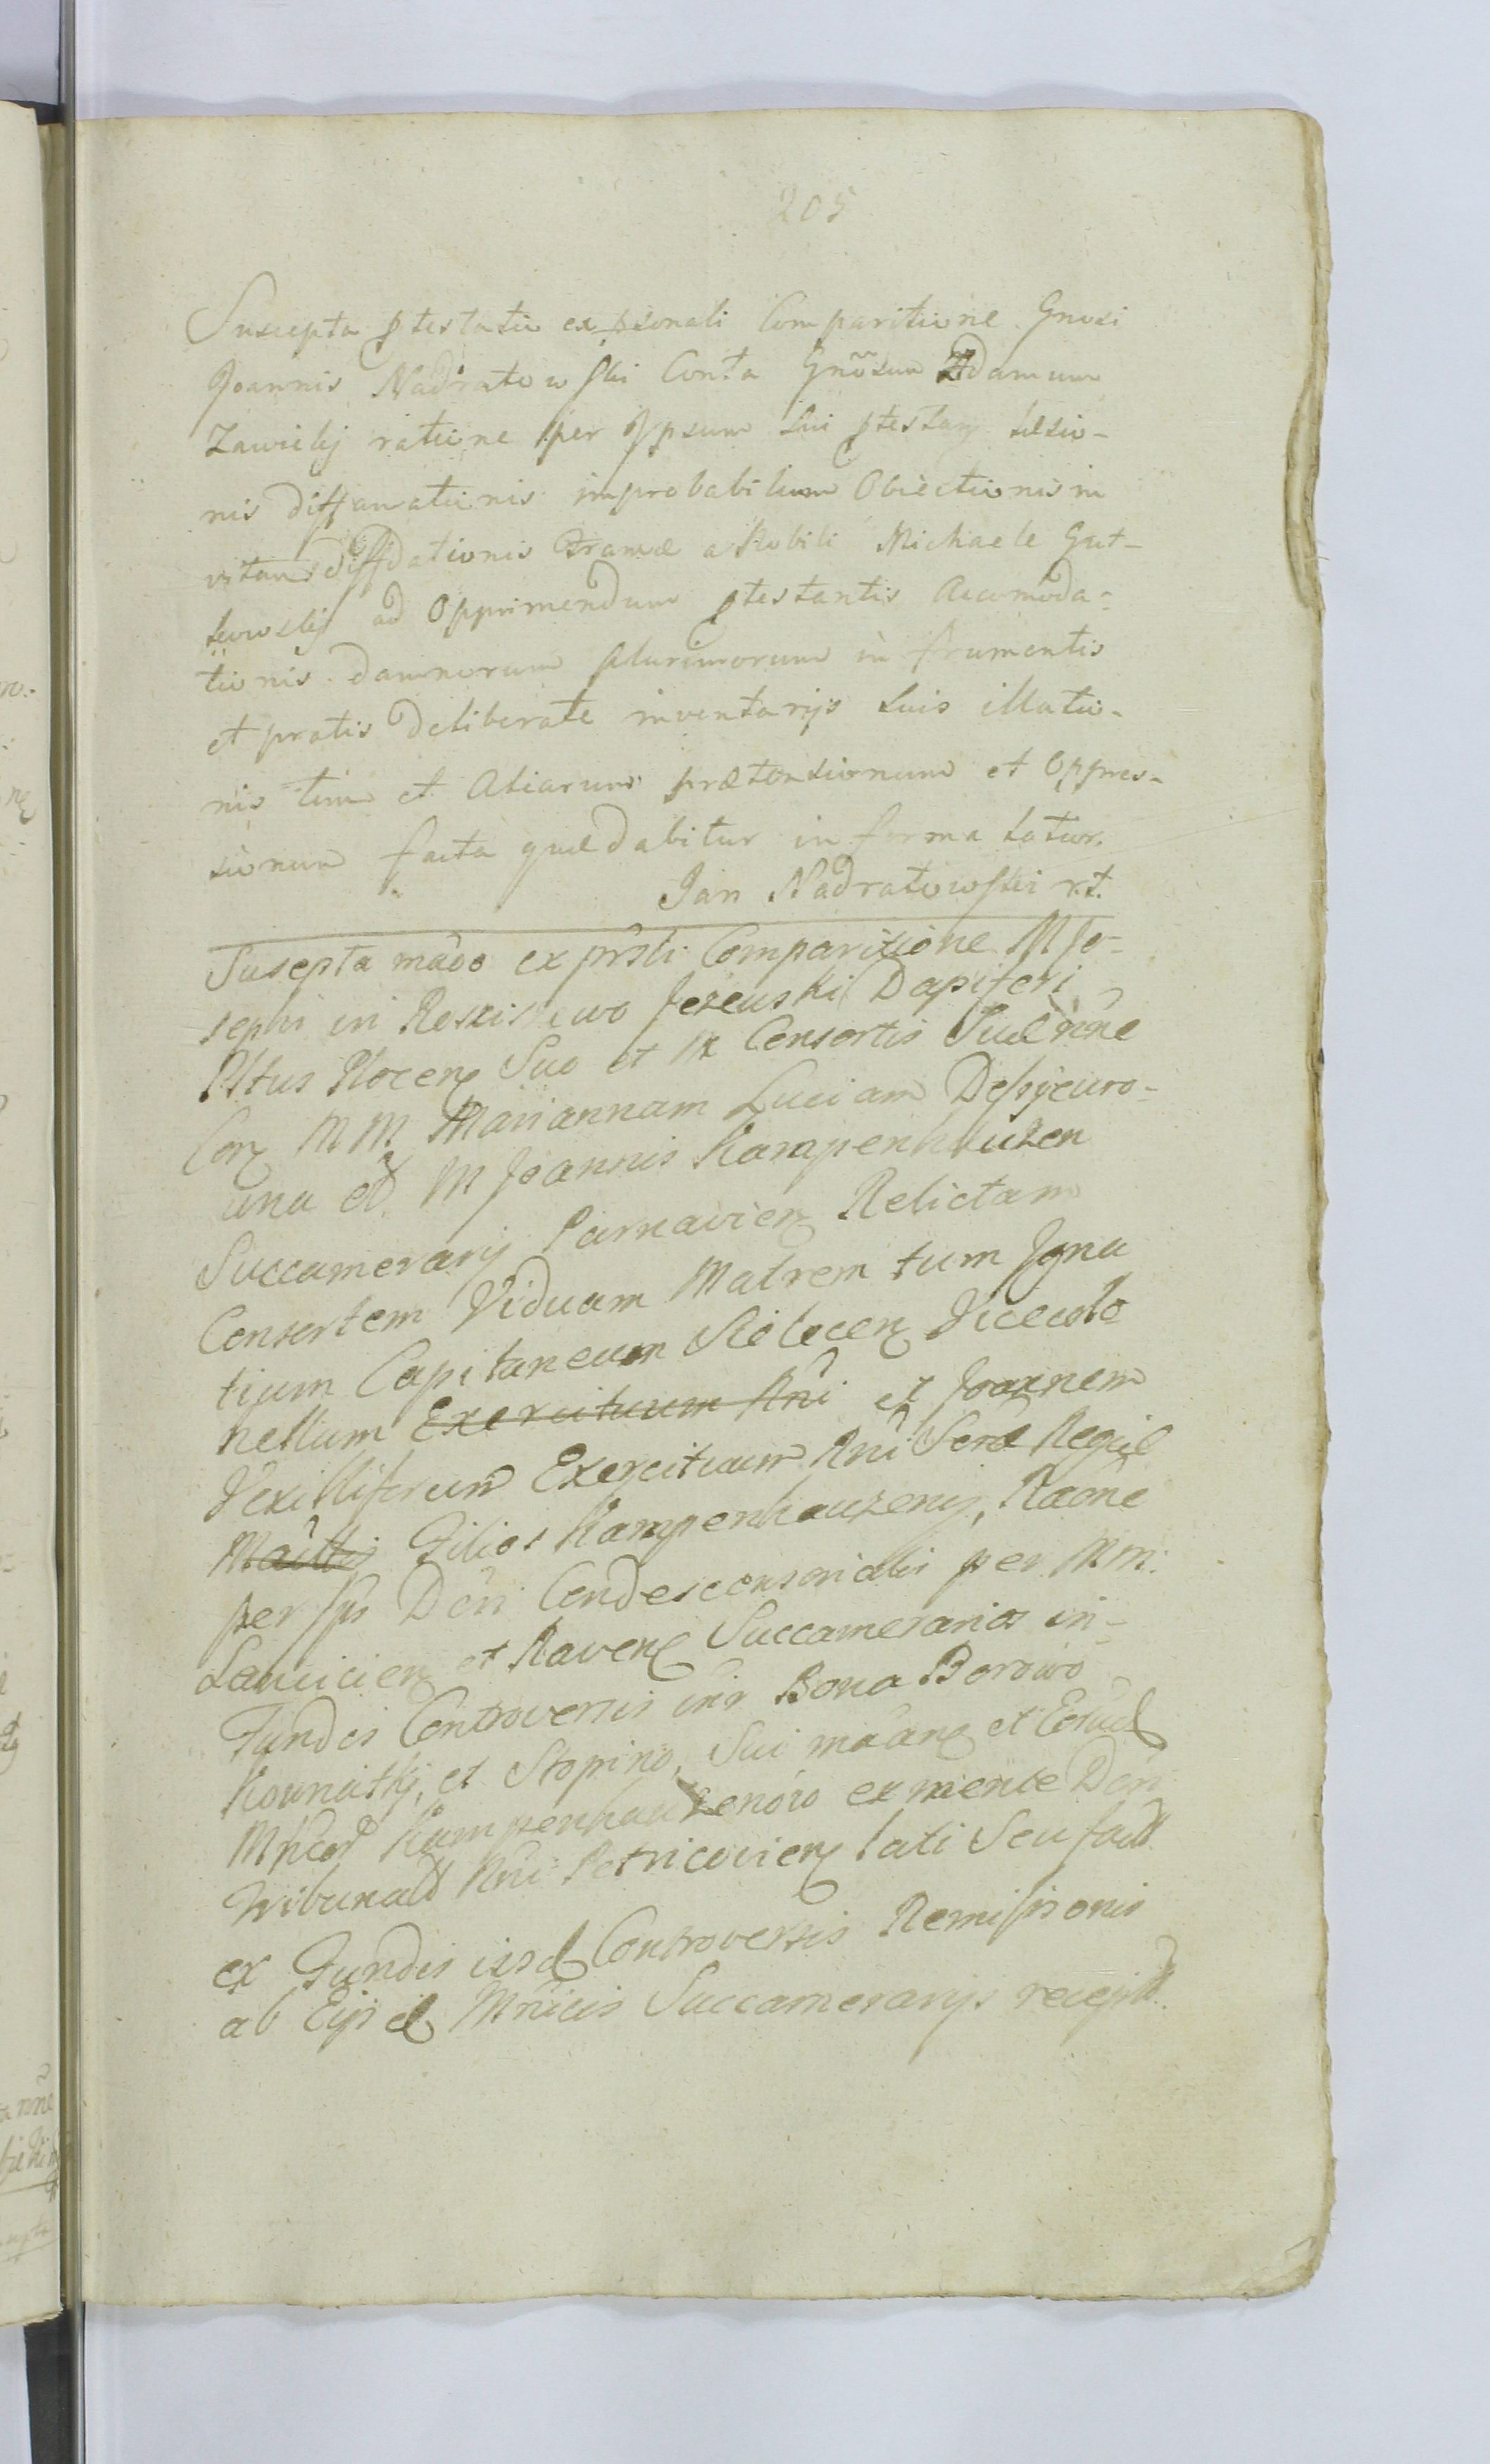 205
Suscepta ptestatio ex psonali Comparitione Gnosi
Joannis Nadratowski Conta Gnosum Adamum
Zawielij ratione per Ipsum sui ptestan læsio-
nis diffamationis improbabilium Obiectionis in
vitam diffidationis Framæ a Nobili Michaele Gut-
kowskij ad Opprimendum ptestantis Accomoda-
tionis damnorum plurimorum in frumentis
et pratis deliberate inventarijs suis illatio-
nis tum et Aliarum prætensionum et Oppres-
sionum facta quæ dabitur in forma latior.
Jan Nadratowski
Susepta mado ex prsli Comparizione M Jo-
sephi in Jezewski Dapiferi
Pltus Plocen Suo et M Consortis Suæ nne
Con MM Mariannam Luciam
una et M Joannis Kampenhauzen
Succamerarij Parnavien Relictam
Consortem Viduam Matrem tum Igna
tium Capitaneum Vicecolo
nellum Exercituum Rni et Joannem
Vexilliferum Exercituum Rni Seræ Regiæ
Filios Kampenhauzenij, Raõne
per Ips Dcri Condescensorialis per MM:
Lancicien et Raven Succamerarios in-
Fundis Controversis intr Bona Borowo
et Stopino, Sui et
Kampenhauzenów ex mente Dcri
Tribunal Rni Petricovien lati Seu
ex Fundis iisd Controversis Remissionis
ab Eijsd Mficis Succamerarijs